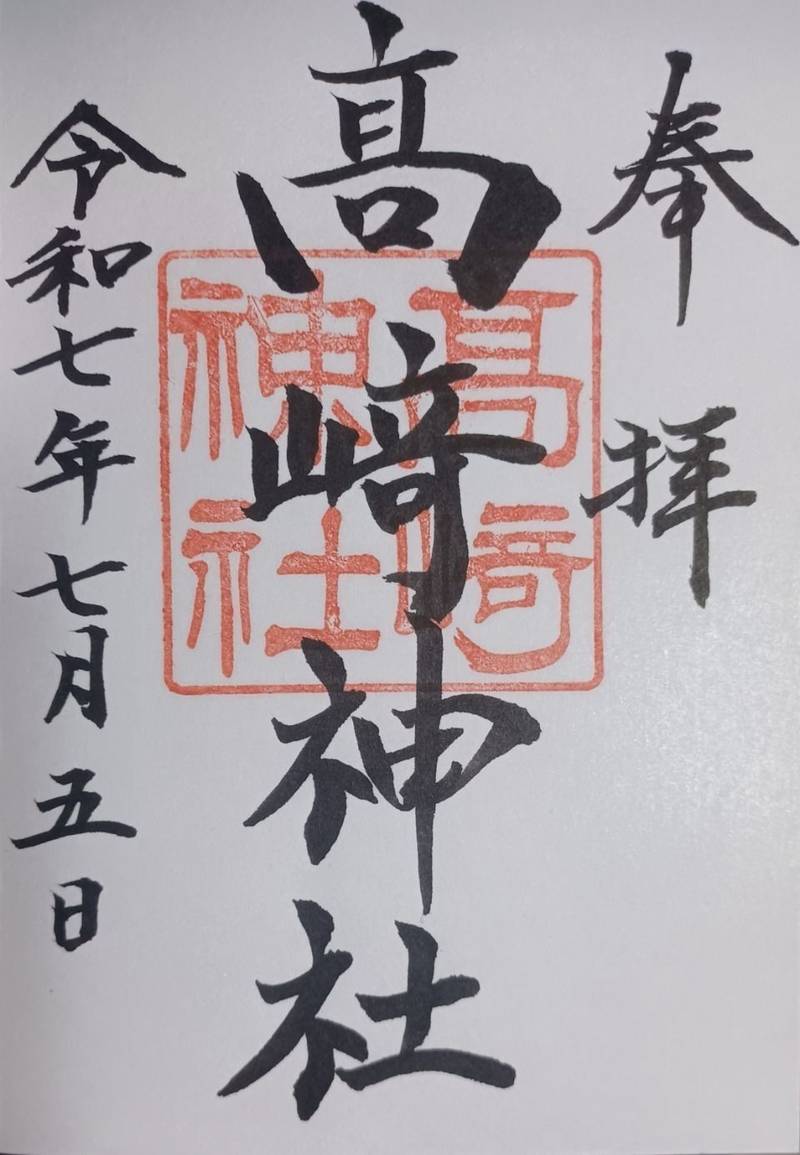 奉拝
髙﨑神社
髙﨑
神社
令和七年七月五日